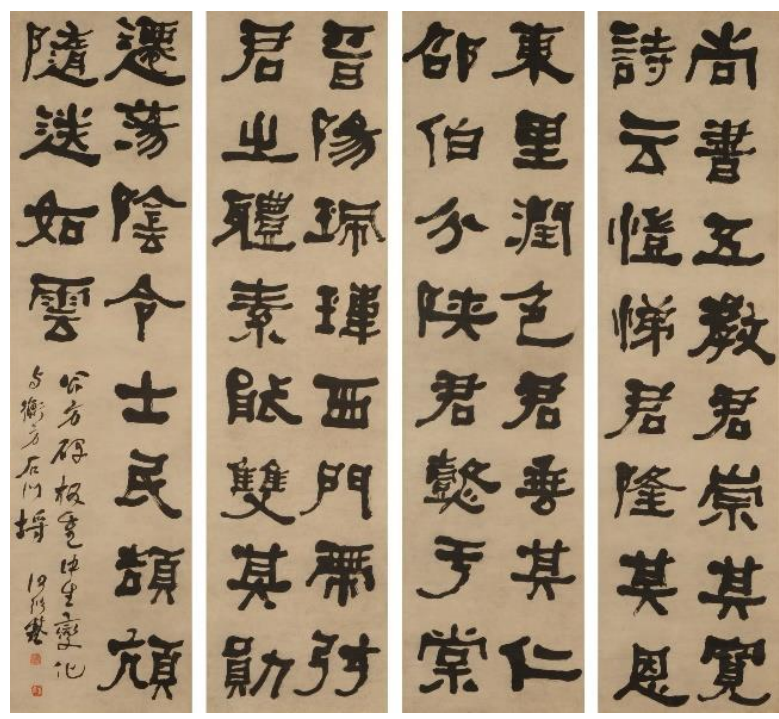 尚書五教君崇其寬
詩云愷悌君隆其恩
東里潤色君垂其仁
邵伯分陝君懿于棠
晉陽珮瑋西門帶弦
君之體素能雙其勛
遷蕩陰令士民頡頏
隨送如雲
公方碑板中生變化
与衡方石門埒 何紹基